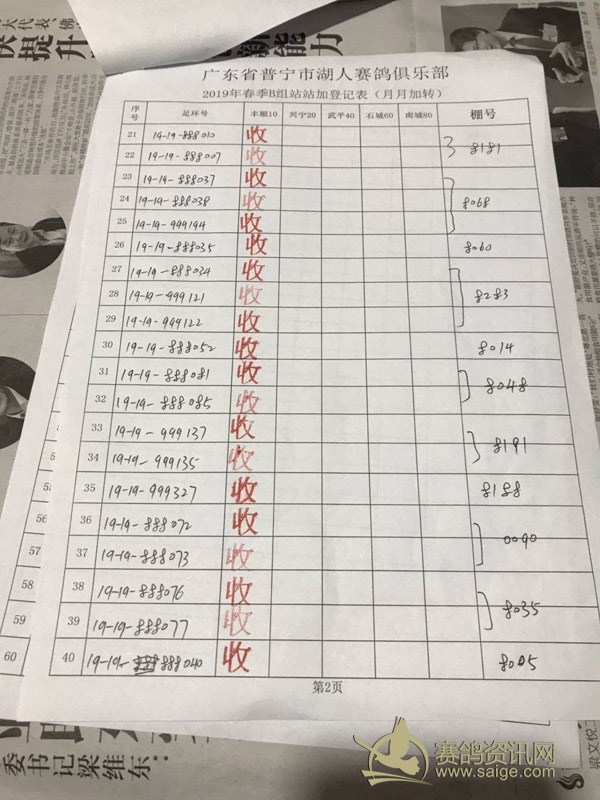 大代表、佛
快提升
能力
广东省普宁市湖人赛鸽俱乐部
2019年春季B组站站加登记表（月月加转）
序号 足环号 丰顺10 兴宁20 武平40 石城60 南城80 棚号
21 19-19-888010 收
22 19-19-888007 收 8181
23 19-19-888037 收
24 19-19-888038 收 8068
25 19-19-999194 收
26 19-19-888035 收 8060
27 19-19-888034 收
28 19-19-999121 收 8283
29 19-19-999122 收
30 19-19-888052 收 8014
31 19-19-888081 收
32 19-19-888085 收 8048
33 19-19-999137 收
34 19-19-999135 收 8191
35 19-19-999327 收 8188
36 19-19-888072 收
37 19-19-888073 收 0090
38 19-19-888076 收
39 19-19-888077 收 8035
40 19-19-888040 收 8005
第2页
56
57
58
59
60
委书记梁维东：
梁文悦
赛鸽资讯网
www.saige.com